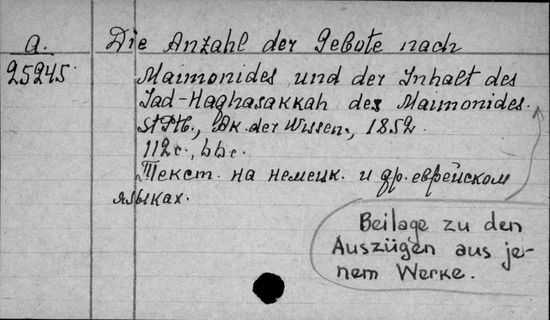 a.
25245.
Die Anzahl der Gebote nach
Maimonides und der Inhalt des
Jad-Haghasakkah des Maimonides.
StPtb., Ak. der Wissen., 1852.
112с., ььс.
Текст. на немецк. и др. еврейском
языках.
Beilage zu den
Auszügen aus je-
nem Werke.